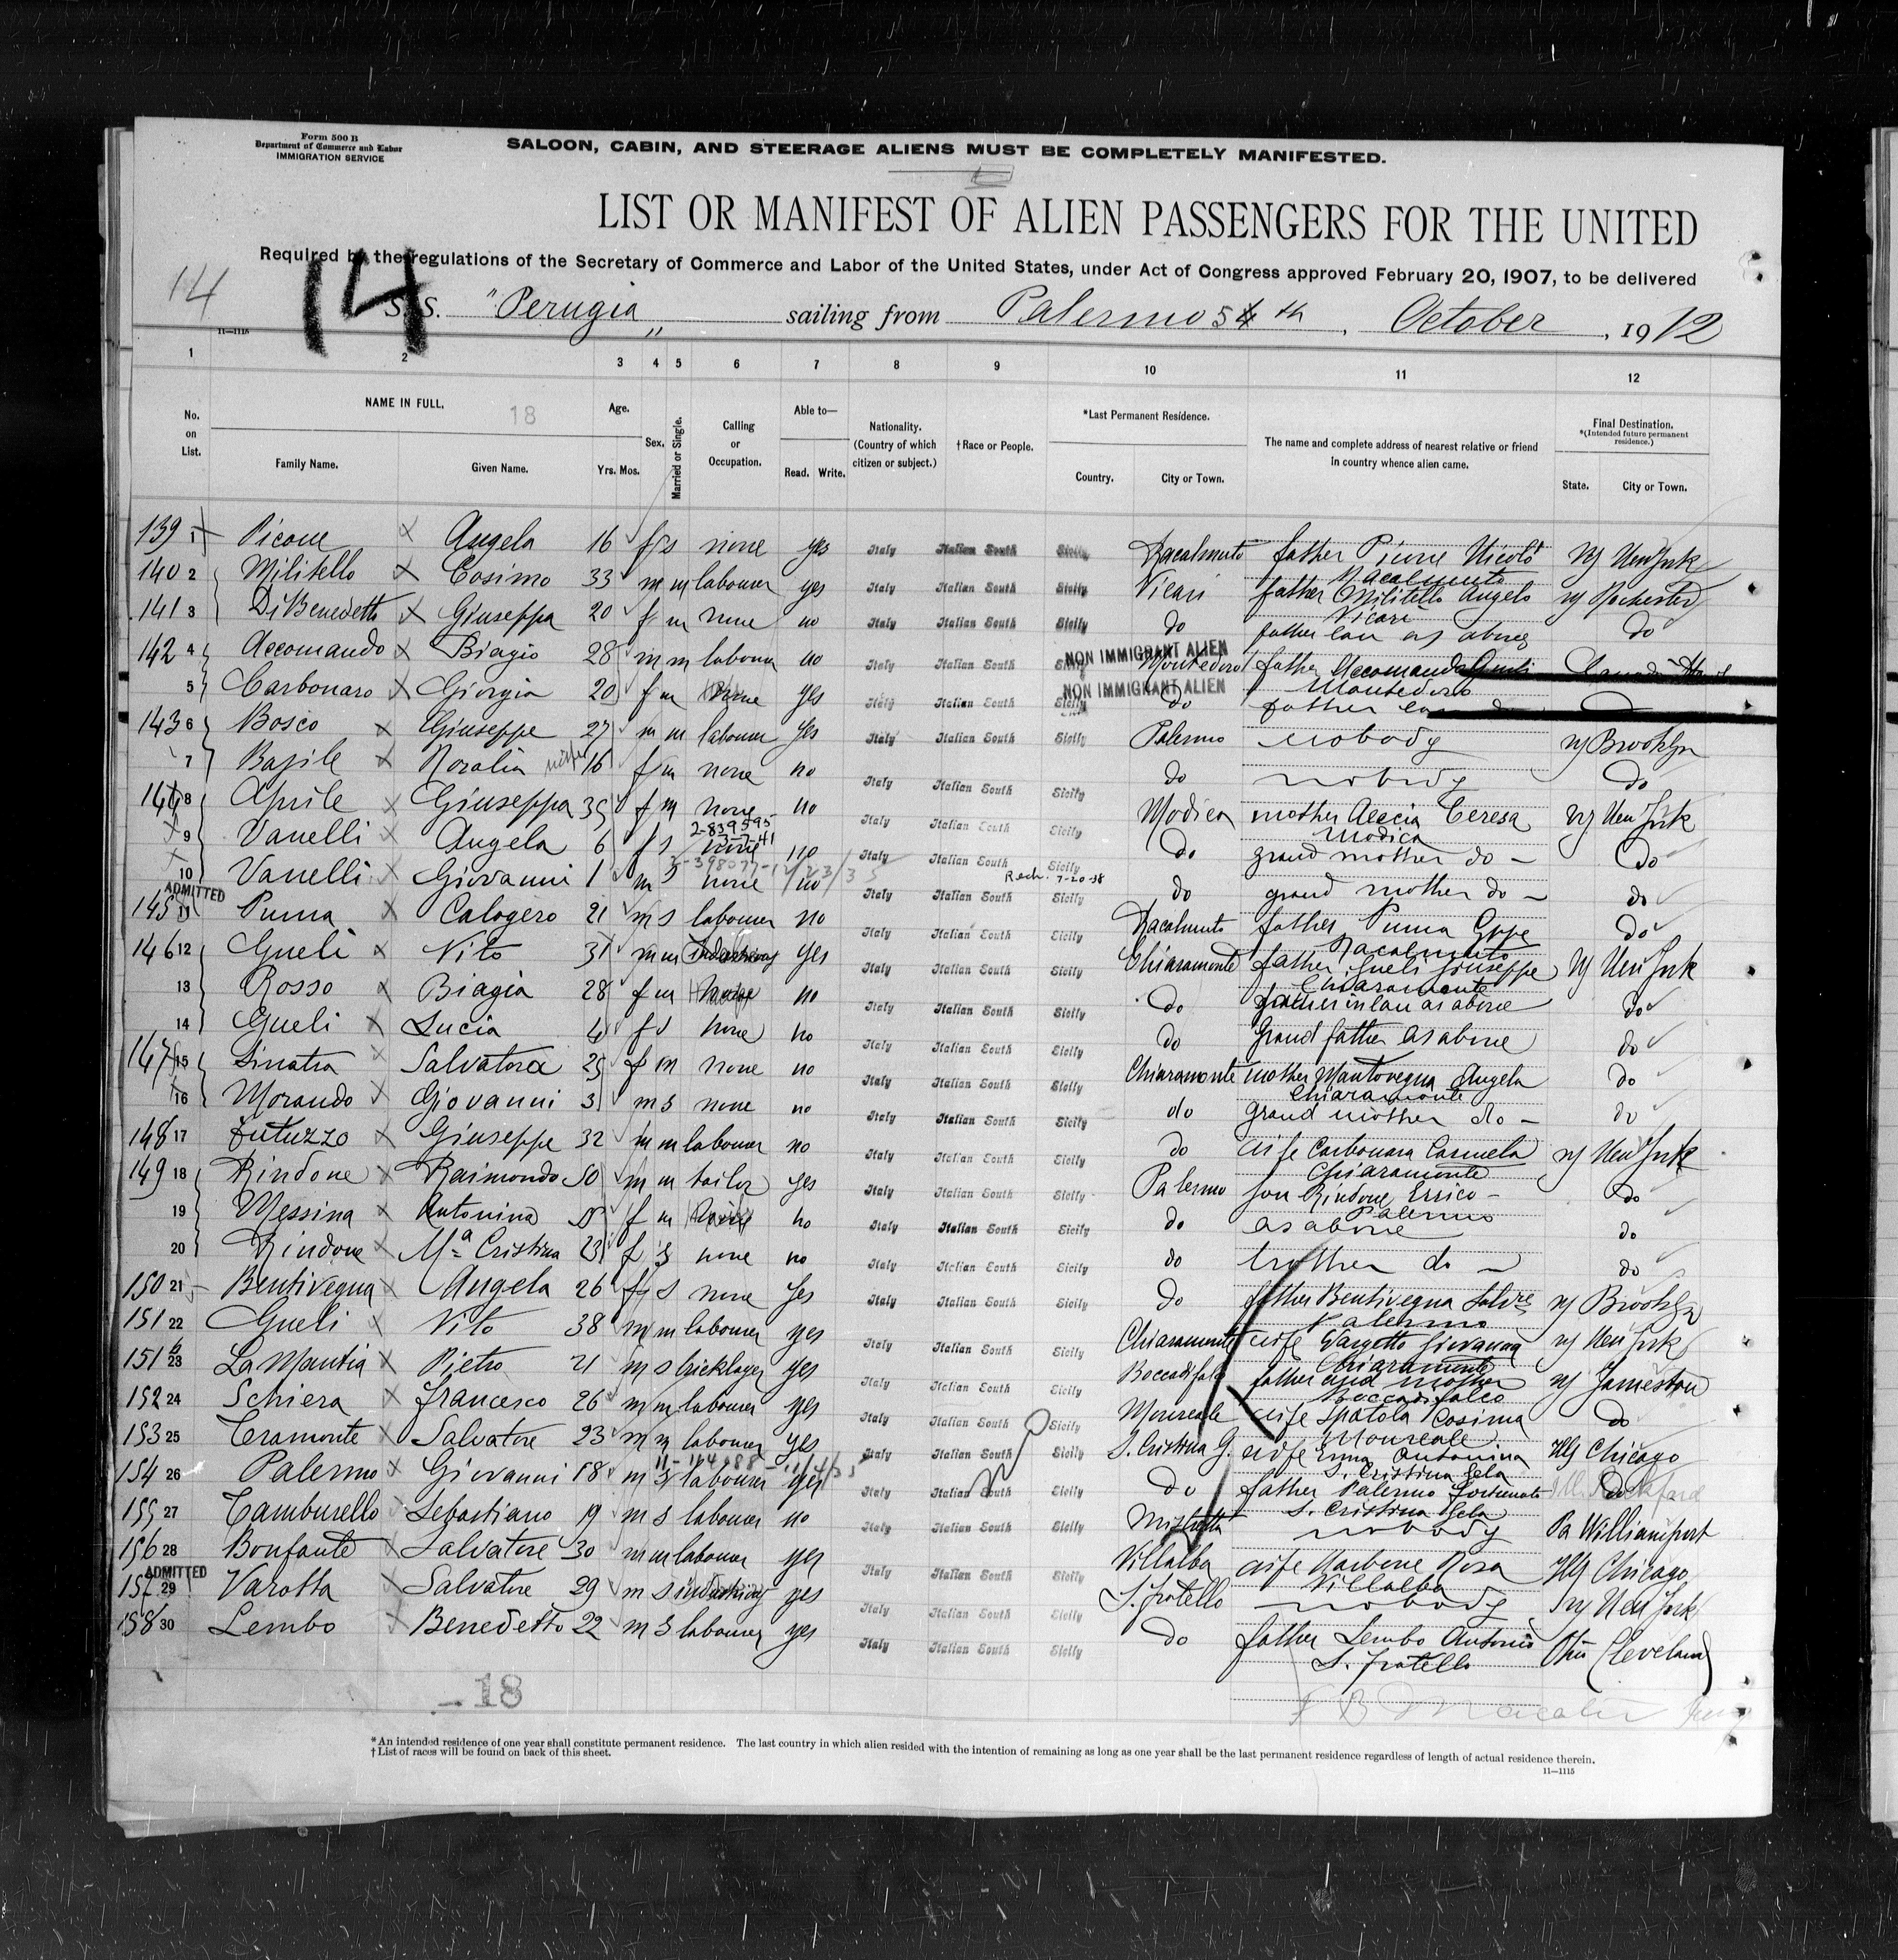 Form 500 B
Department of Commerce and Labor
IMMIGRATION SERVICE
SALOON, CABIN, AND STEERAGE ALIENS MUST BE COMPLETELY MANIFESTED.
LIST OR MANIFEST OF ALIEN PASSENGERS FOR THE UNITED
Required by the regulations of the Secretary of Commerce and Labor of the United States, under Act of Congress approved February 20, 1907, to be delivered
14 14
S. S. "Perugia" sailing from Palermo 5th, October, 1912
11—1115
1 2 3 4 5 6 7 8 9 10 11 12
No. on List. NAME IN FULL. 18 Age. Sex. Married or Single. Calling or Occupation. Able to— Nationality. (Country of which citizen or subject.) †Race or People. *Last Permanent Residence. The name and complete address of nearest relative or friend in country whence alien came. Final Destination. *(Intended future permanent residence.)
Family Name. Given Name. Yrs. Mos. Read. Write. Country. City or Town. State. City or Town.
139 1 Picone Angela 16 f s none yes Italy Italian South Sicily Racalmuto father Picone Nicolò Racalmuto NY New York
140 2 Militello Cosimo 33 m m labourer yes Italy Italian South Sicily Vicari father Militello Angelo Vicari NY Rochester
141 3 Di Benedetto Giuseppa 20 f m none no Italy Italian South Sicily do father law as above do
142 4 Accomando Biagio 28 m m labourer no Italy Italian South Sicily NON IMMIGRANT ALIEN Montedoro father Accomando Montedoro Canada
5 Carbonaro Giorgia 20 f m none yes Italy Italian South Sicily NON IMMIGRANT ALIEN do father law do
143 6 Bosco Giuseppe 27 m m labourer yes Italy Italian South Sicily Palermo nobody NY Brooklyn
7 Basile Rosalia wife 16 f m none no Italy Italian South Sicily do nobody do
144 8 Aprile Giuseppa 35 f m none no Italy Italian South Sicily Modica mother Teresa Modica NY New York
9 Vanelli Angela 6 f s none no 2-839595 3-7-41 Italy Italian South Sicily do grand mother do - do
10 Vanelli Giovanni 1 m s none no Italy Italian South Sicily Rech. 7-20-38 do grand mother do - do
ADMITTED
145 11 Puma Calogero 21 m s labourer no Italy Italian South Sicily Racalmuto father Puma Gppe Racalmuto do
146 12 Gueli Vito 31 m m yes Italy Italian South Sicily Chiaramonte father Gueli Giuseppe Chiaramonte NY New York
13 Rosso Biagia 28 f m no Italy Italian South Sicily do father in law as above do
14 Gueli Lucia 4 f s none no Italy Italian South Sicily do Grand father as above do
147 15 Sinatra Salvatora 25 f m none no Italy Italian South Sicily Chiaramonte mother Mantovegna Angela Chiaramonte do
16 Morando Giovanni 3 m s none no Italy Italian South Sicily do grand mother do - do
148 17 Futuzzo Giuseppe 32 m m labourer no Italy Italian South Sicily do wife Carbonara Carmela Chiaramonte NY New York
149 18 Rindone Raimondo 50 m m tailor yes Italy Italian South Sicily Palermo son Rindone Errico - Palermo do
19 Messina Antonina f m no Italy Italian South Sicily do as above do
20 Rindone Mª Cristina 23 f s none no Italy Italian South Sicily do brother do - do
150 21 Bentivegna Angela 26 f s none yes Italy Italian South Sicily do father Bentivegna Salvre Palermo NY Brooklyn
151 22 Gueli Vito 38 m m labourer yes Italy Italian South Sicily Chiaramonte wife Giovanna Chiaramonte NY New York
151b 23 La Mantia Pietro 21 m s bricklayer yes Italy Italian South Sicily Boccadifalco father and mother Boccadifalco NY Jameston
152 24 Schiera Francesco 26 m m labourer yes Italy Italian South Sicily Monreale wife Spatola Cosima Monreale do
153 25 Teramonte Salvatore 23 m m labourer yes Italy Italian South Sicily S. Cristina G. wife Enna Antonina S. Cristina Gela Ills Chicago
154 26 Palermo Giovanni 18 m s labourer yes Italy Italian South Sicily do father Palermo Fortunato S. Cristina Gela do
155 27 Tamburello Sebastiano 19 m s labourer no Italy Italian South Sicily Mistretta nobody Pa Williamsport
156 28 Bonfante Salvatore 30 m m labourer yes Italy Italian South Sicily Villalba wife Rosa Villalba Ills Chicago
ADMITTED
157 29 Varotta Salvatore 29 m s yes Italy Italian South Sicily S. fratello nobody NY New York
158 30 Lembo Benedetto 22 m s labourer yes Italy Italian South Sicily do father Lembo Antonio S. fratello Ohio Cleveland
- 18
* An intended residence of one year shall constitute permanent residence. The last country in which alien resided with the intention of remaining as long as one year shall be the last permanent residence regardless of length of actual residence therein.
† List of races will be found on back of this sheet.
11—1115